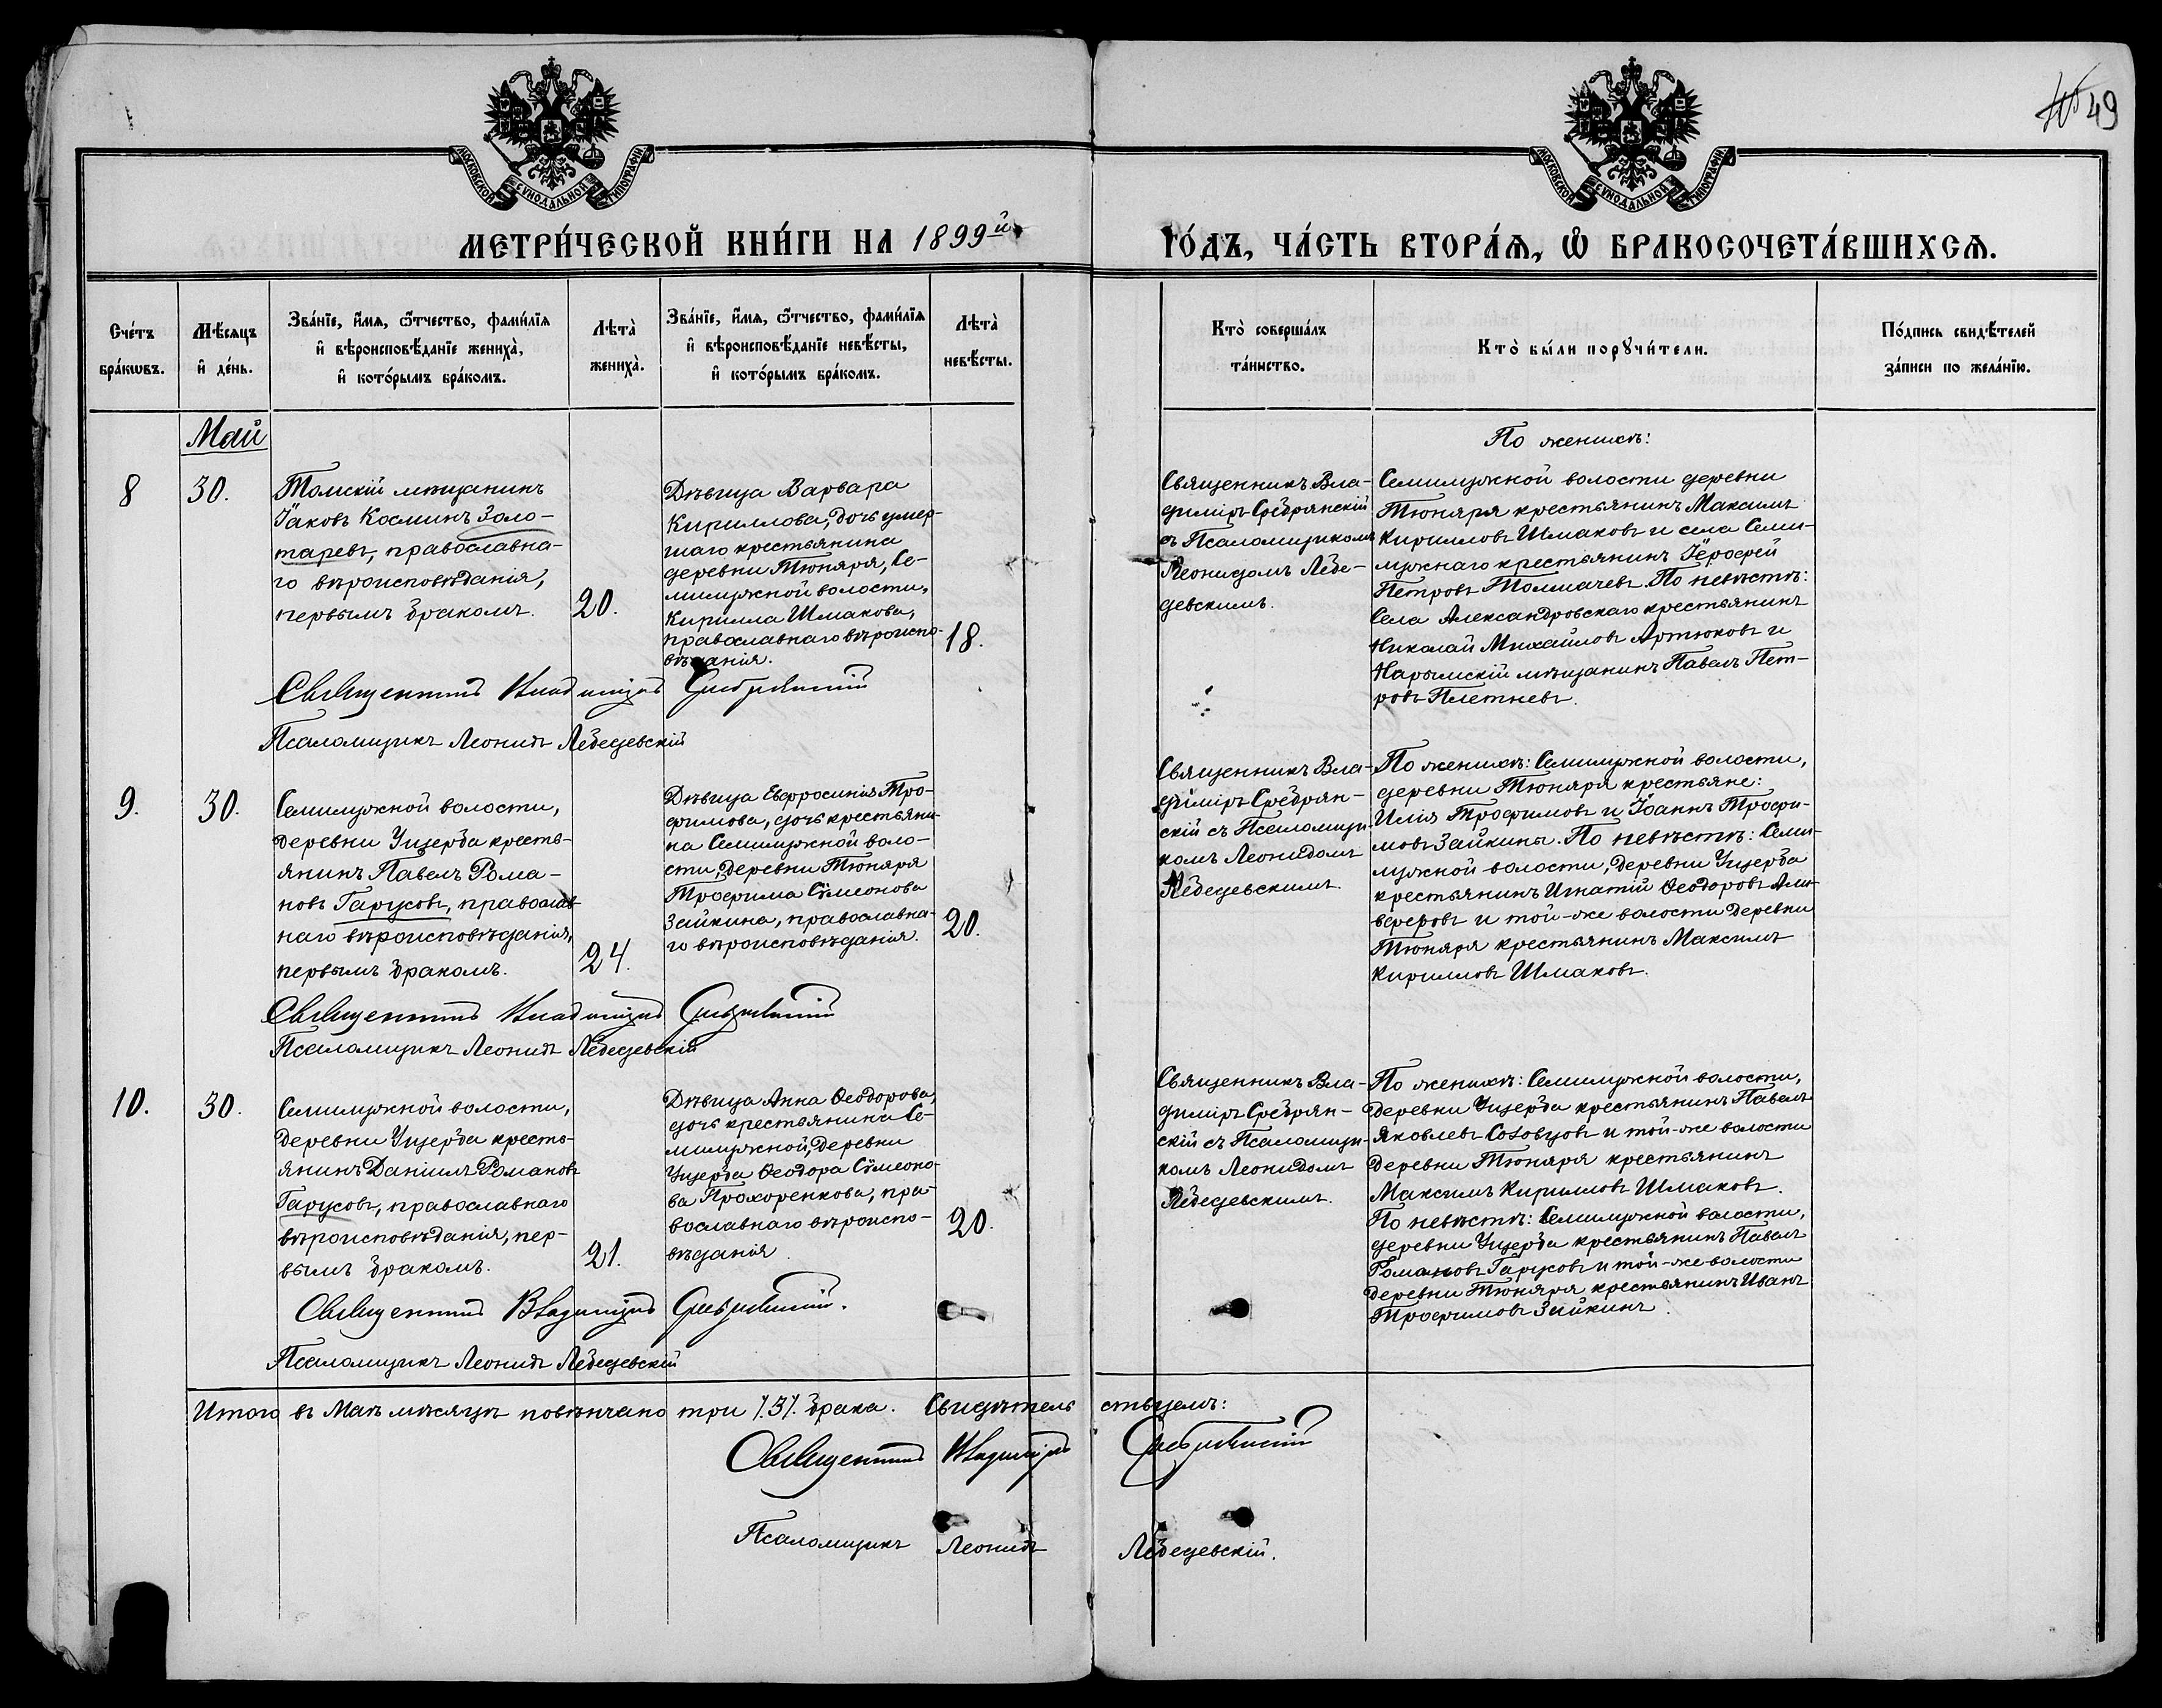 49
МОСКОВСКОЙ СѴНОДАЛЬНОЙ ТИПОГРАФІИ
МОСКОВСКОЙ СѴНОДАЛЬНОЙ ТИПОГРАФІИ
МЕТРИ́ЧЕСКОЙ КНИ́ГИ НА 1899й
ГО́ДЪ, ЧА́СТЬ ВТОРА́Ѧ, Ѽ БРАКОСОЧЕТА́ВШИХСѦ.
Сче́тъ
бра́кѡвъ.
Мѣ́сяцъ
и҆ де́нь.
Зва́нїе, и҆́мѧ, ѻ҆́тчество, фами́лїѧ
и҆ вѣроисповѣ́данїе жениха̀,
и҆ кото́рымъ бра́комъ.
Лѣта̀
жениха̀.
Зва́нїе, и҆́мѧ, ѻ҆́тчество, фами́лїѧ
и҆ вѣроисповѣ́данїе невѣ́сты,
и҆ кото́рымъ бра́комъ.
Лѣта̀
невѣ́сты.
Кто̀ соверша́лъ
та́инство.
Кто̀ бы́ли порꙋчи́тели.
По́дпись свидѣ́телей
за́писи по жела́нїю.
Май
8
30.
Томскій мѣщанинъ
Іаковъ Косминъ Золо-
таревъ, православна-
го вѣроисповѣданія,
первымъ бракомъ.
20.
Дѣвица Варвара
Кириллова, дочь умер-
шаго крестьянина
деревни Тюняря, Се-
милужной волости,
Кирилла Шмакова,
православнаго вѣроиспо-
вѣданія.
18.
Священникъ Вла-
диміръ Сребрянскій
съ Псаломщикомъ
Леонидомъ Лебе-
девскимъ.
По женихѣ:
Семилужной волости деревни
Тюняря крестьянинъ Максимъ
Кирилловъ Шмаковъ и села Семи-
лужнаго крестьянинъ Іерофей
Петровъ Толмачевъ. По невѣстѣ:
Села Александровскаго крестьянинъ
Николай Михайловъ Артюковъ и
Нарымскій мѣщанинъ Павелъ Пет-
ровъ Плетневъ.
Священникъ Владиміръ Сребрянскій
Псаломщикъ Леонидъ Лебедевскій
9.
30.
Семилужной волости,
деревни Ущерба кресть-
янинъ Павелъ Рома-
новъ Гарусовъ, православ-
наго вѣроисповѣданія,
первымъ бракомъ.
24.
Дѣвица Евфросинія Тро-
фимова, дочь крестьяни-
на Семилужной воло-
сти, деревни Тюняря
Трофима Сѵмеонова
Зайкина, православна-
го вѣроисповѣданія.
20.
Священникъ Вла-
диміръ Сребрян-
скій съ Псаломщи-
комъ Леонидомъ
Лебедевскимъ.
По женихѣ: Семилужной волости,
деревни Тюняря крестьяне:
Илія Трофимовъ и Іоаннъ Трофи-
мовъ Зайкины. По невѣстѣ: Семи-
лужной волости, деревни Ущерба
крестьянинъ Игнатій Ѳеодоровъ
и той-же волости деревни
Тюняря крестьянинъ Максимъ
Кирилловъ Шмаковъ.
Священникъ Владиміръ Сребрянскій
Псаломщикъ Леонидъ Лебедевскій
10.
30.
Семилужной волости,
деревни Ущерба кресть-
янинъ Даніилъ Романовъ
Гарусовъ, православнаго
вѣроисповѣданія, пер-
вымъ бракомъ.
21.
Дѣвица Анна Ѳеодорова,
дочь крестьянина Се-
милужной, деревни
Ущерба Ѳеодора Сѵмеоно-
ва Прохоренкова, пра-
вославнаго вѣроиспо-
вѣданія.
20.
Священникъ Вла-
диміръ Сребрян-
скій съ Псаломщи-
комъ Леонидомъ
Лебедевскимъ.
По женихѣ: Семилужной волости,
деревни Ущерба крестьянинъ Павелъ
Яковлевъ и той-же волости
деревни Тюняря крестьянинъ
Максимъ Кирилловъ Шмаковъ.
По невѣстѣ: Семилужной волости,
деревни Ущерба крестьянинъ Павелъ
Романовъ Гарусовъ и той-же волости
деревни Тюняря крестьянинъ Иванъ
Трофимовъ Зайкинъ.
Священникъ Владиміръ Сребрянскій.
Псаломщикъ Леонидъ Лебедевскій
Итого въ Маѣ мѣсяцѣ повѣнчано три /.3/. брака. Свидѣтельствуемъ:
Священникъ Владиміръ Сребрянскій
Псаломщикъ Леонидъ Лебедевскій.